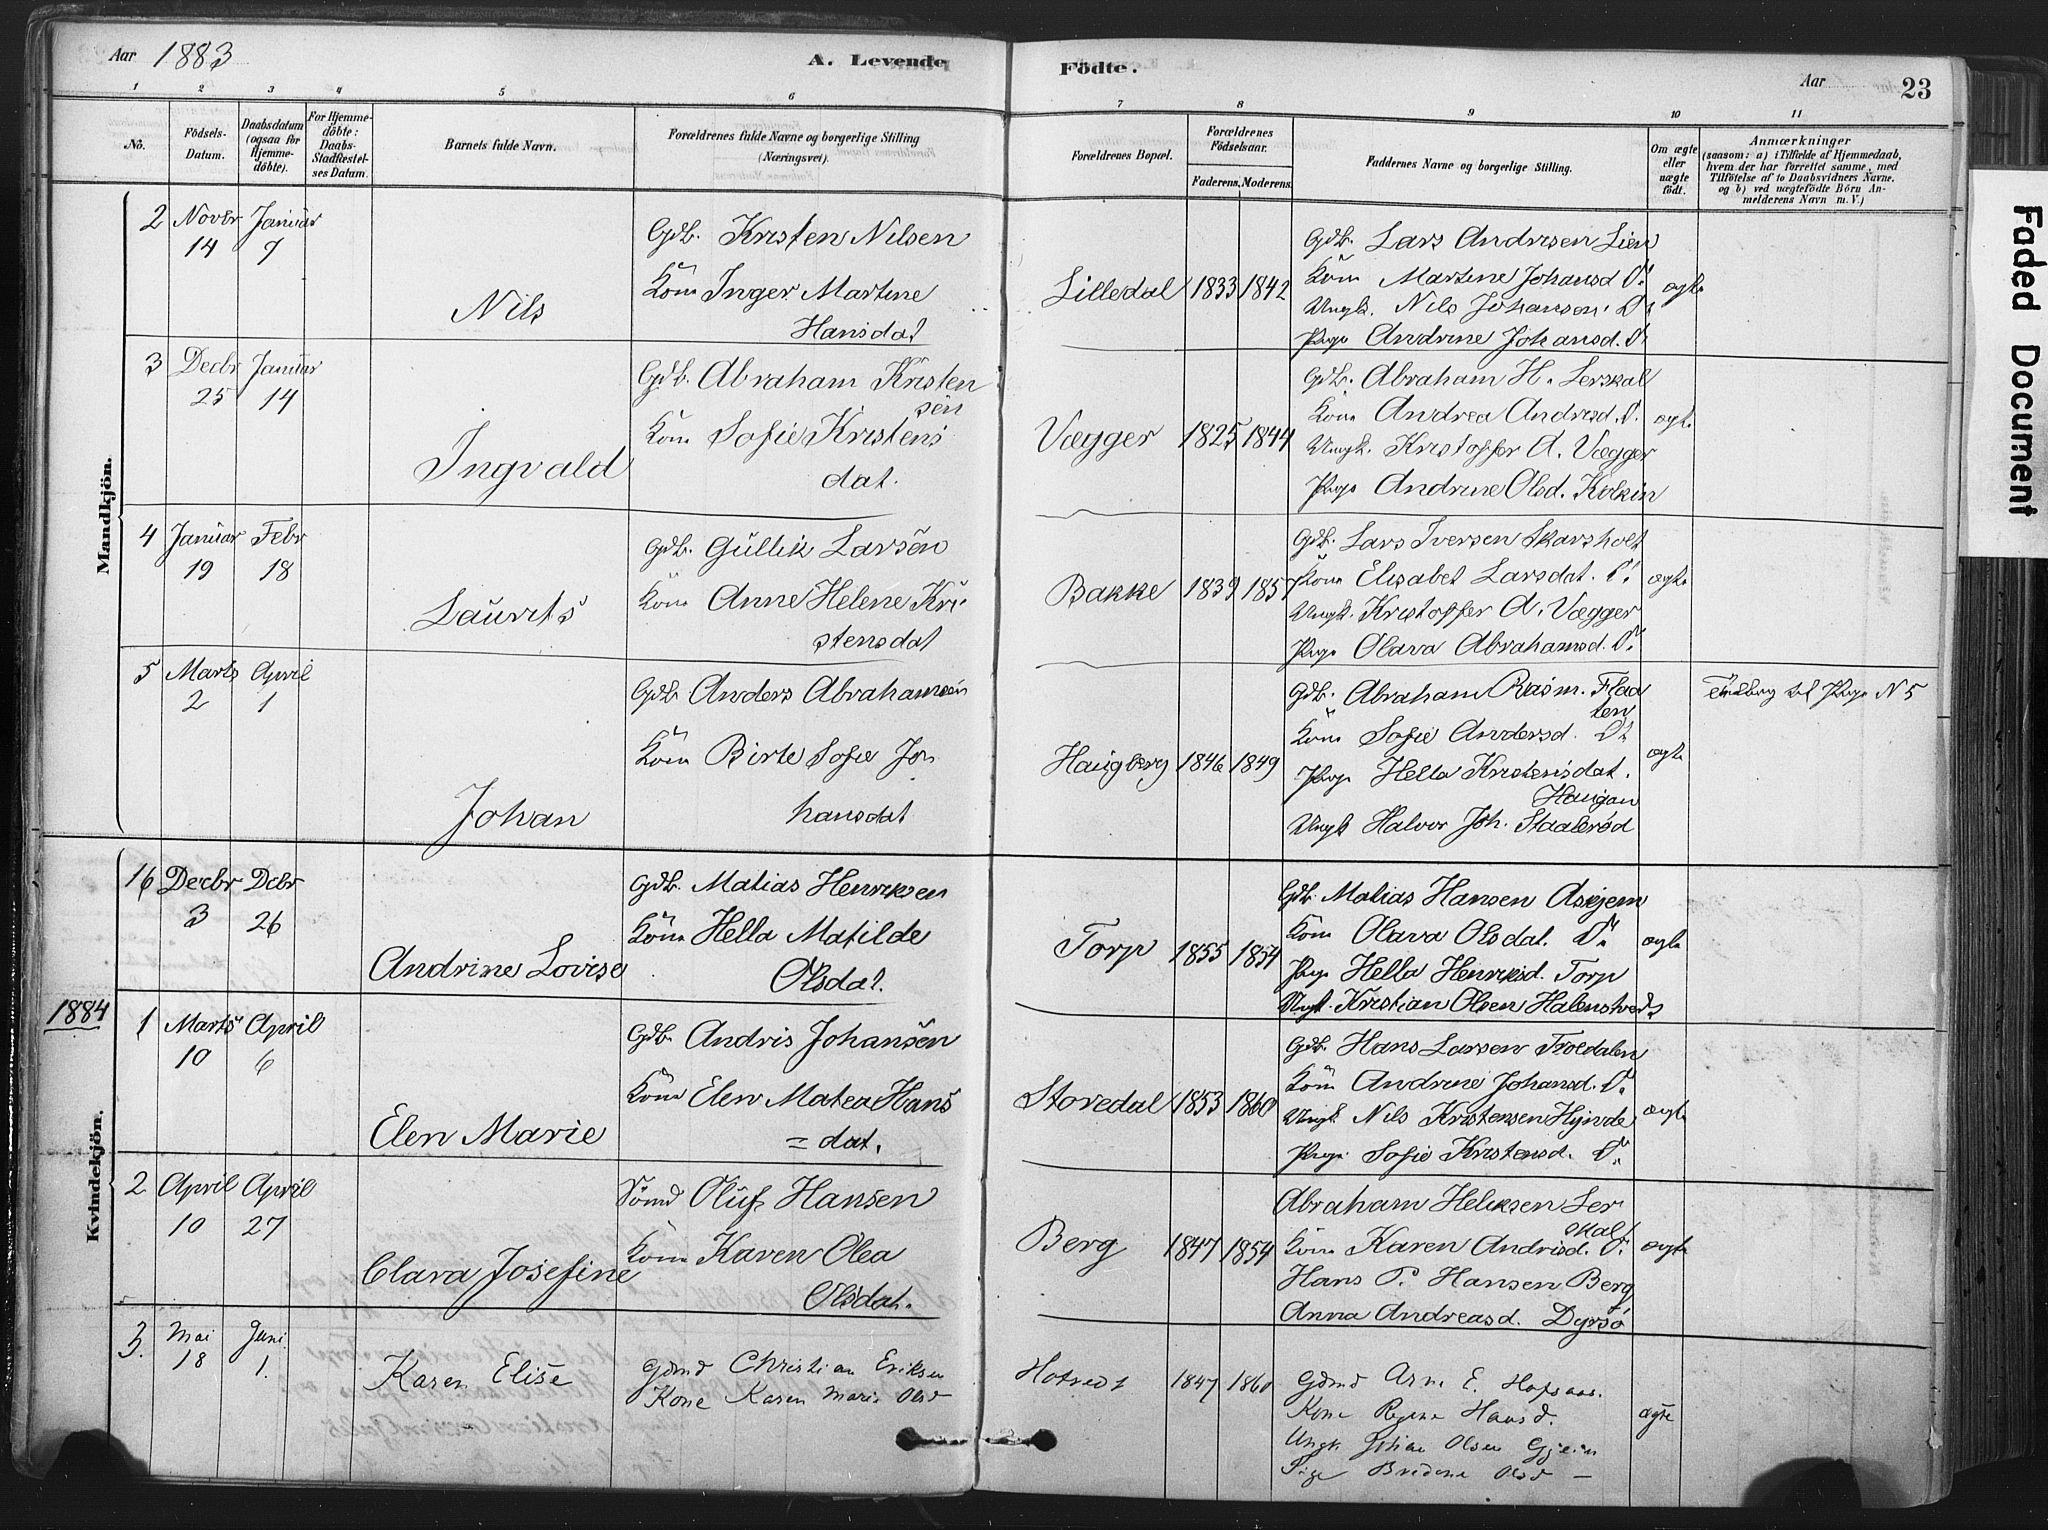 Aar 1883
A. Levende Födte.
Aar
23
1 2 3 4 5 6 7 8 9 10 11
No.
Födsels-Datum.
Daabsdatum (ogsaa for Hjemmedöbte).
For Hjemmedöbte: Daabs-Stadfæstelses Datum.
Barnets fulde Navn.
Forældrenes fulde Navne og borgerlige Stilling (Næringsvei).
Forældrenes Bopæl.
Forældrenes Födselsaar.
Faderens. Moderens.
Faddernes Navne og borgerlige Stilling.
Om ægte eller uægte födt.
Anmærkninger
(saasom: a) i Tilfælde af Hjemmedaab,
hvem der har forrettet samme, med
Tilföielse af to Daabsvidners Navne.
og b) ved uægtefödte Börn An-
melderens Navn m. V.)
Mandkjön.
2 Novbr 14 Januar 7
Nils
Gdb. Kristen Nilsen
Kön Inger Martine
Hansdat
Lilledal 1833 1842
Gdb. Lars Andresen Lien
Kön Martine Johansd D:
Ungk. Nils Johansen D:
Pige Andrine Johansd. D:
ægte
3 Decbr 25 Januar 14
Ingvald
Gdb. Abraham Kristen
sen
Kön Sofie Kristens
dat.
Vægger 1825 1844
Gdb. Abraham H. Lerskal
Kön Andrea Andrisd. D.
Ungk. Kristoffer A. Vægger
Pige Andrine Olsd. Kolkin
ægte
4 Januar 19 Febr 18
Laurits
Gdb. Gullik Larsen
Kön Anne Helene Kri
stensdat
Bakke 1839 1857
Gdb. Lars Iversen Skarsholt
Kön Elisabet Larsdat. D:
Ungk. Kristoffer A. Vægger
Pige Olava Abrahamsd. D:
ægte
5 Marts 2 April 1
Johan
Gdb. Anders Abrahamsen
Kön Birte Sofie Jo
hansdat
Haugberg 1846 1849
Gdb. Abraham Rasm. Flaa
ten
Kön Sofie Andersd. D:
Pige Hella Kristensdat.
Haugan
Ungk Halvor Joh. Staalerød
ægte
til Pige N 5
Kvindekjön.
16 Decbr 3 Dcbr 26
Andrine Lovise
Gdb. Matias Henriksen
Kön Hella Matilde
Olsdat.
Torp 1855 1854
Gdb. Matias Hansen Askjem
Kön Olava Olsdat. D:
Pige Hella Henriksd. Torp
Ungk. Kristian Olsen Halenstvedt
ægte
1884
1 Marts 10 April 6
Elen Marie
Gdb. Andris Johansen
Kön Elen Matea Hans
= dat.
Storedal 1853 1860
Gdb. Hans Larsen Foldalen
Kön Andrine Johansd. D:
Ungk. Nils Kristensen Hynde
Pige Sofie Kristensd. D:
ægte
2 April 10 April 27
Clara Josefine
Sömd Oluf Hansen
Kön Karen Olea
Olsdat.
Berg 1847 1854
Abraham Heliksen Ler
skal
Kön Karen Andrisd. D:
Hans P. Hansen Berg
Anna Andreasd. Dyrsö
ægte
3. Mai 18 Juni 1.
Karen Elise
Gdmd Christian Eriksen
Kone Karen Marie Olsd
Hotvedt 1847 1860
Gdmd Arne E. Hofsaas.
Kone Regine Hansd.
Ungk. Johan Olsen Gjein
Pige Bredine Olsd —
ægte
Faded Document